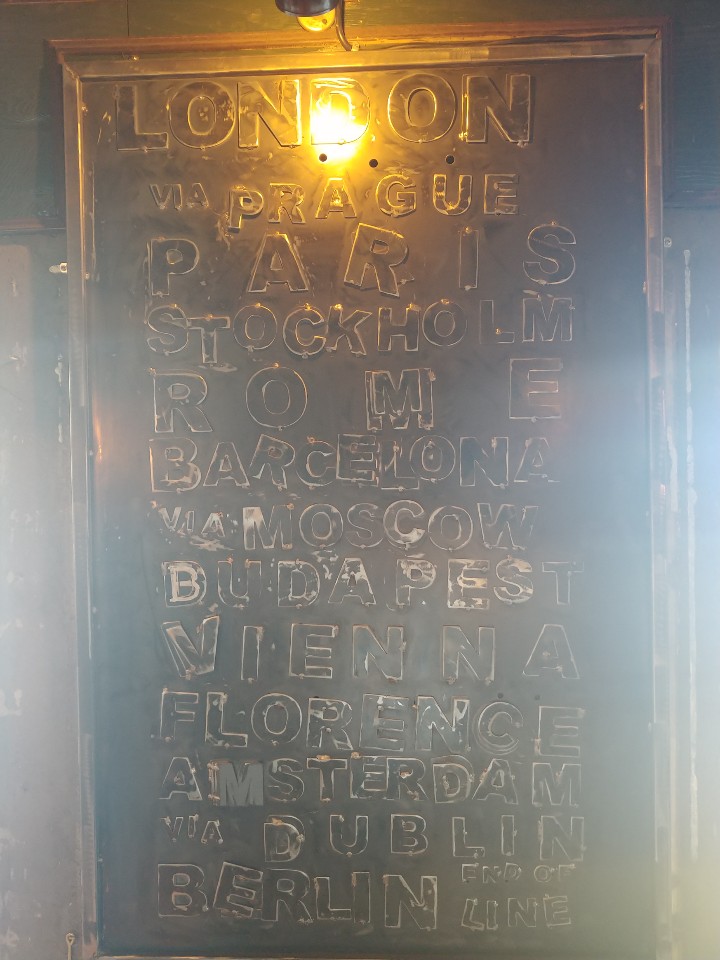 LONDON
VIA PRAGUE
PARIS
STOCKHOLM
ROME
BARCELONA
VIA MOSCOW
BUDAPEST
VIENNA
FLORENCE
AMSTERDAM
VIA DUBLIN
BERLIN END OF LINE